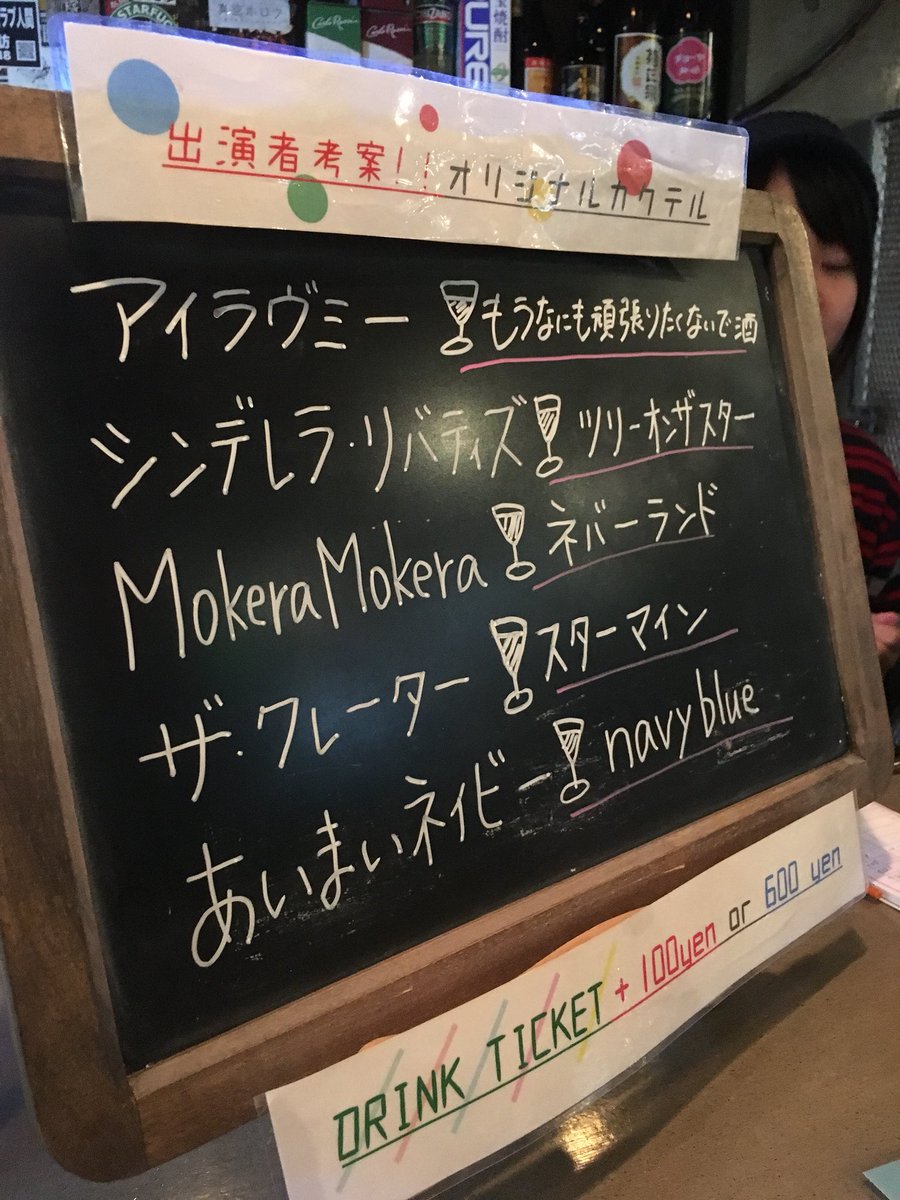 出演者考案!! オリジナルカクテル
アイラヴミー もうなにも頑張りたくないで酒
シンデレラ・リバティズ ツリーオンザスター
MokeraMokera ネバーランド
ザ・クレーター スターマイン
あいまいネイビー navy blue
DRINK TICKET + 100yen or 600 yen